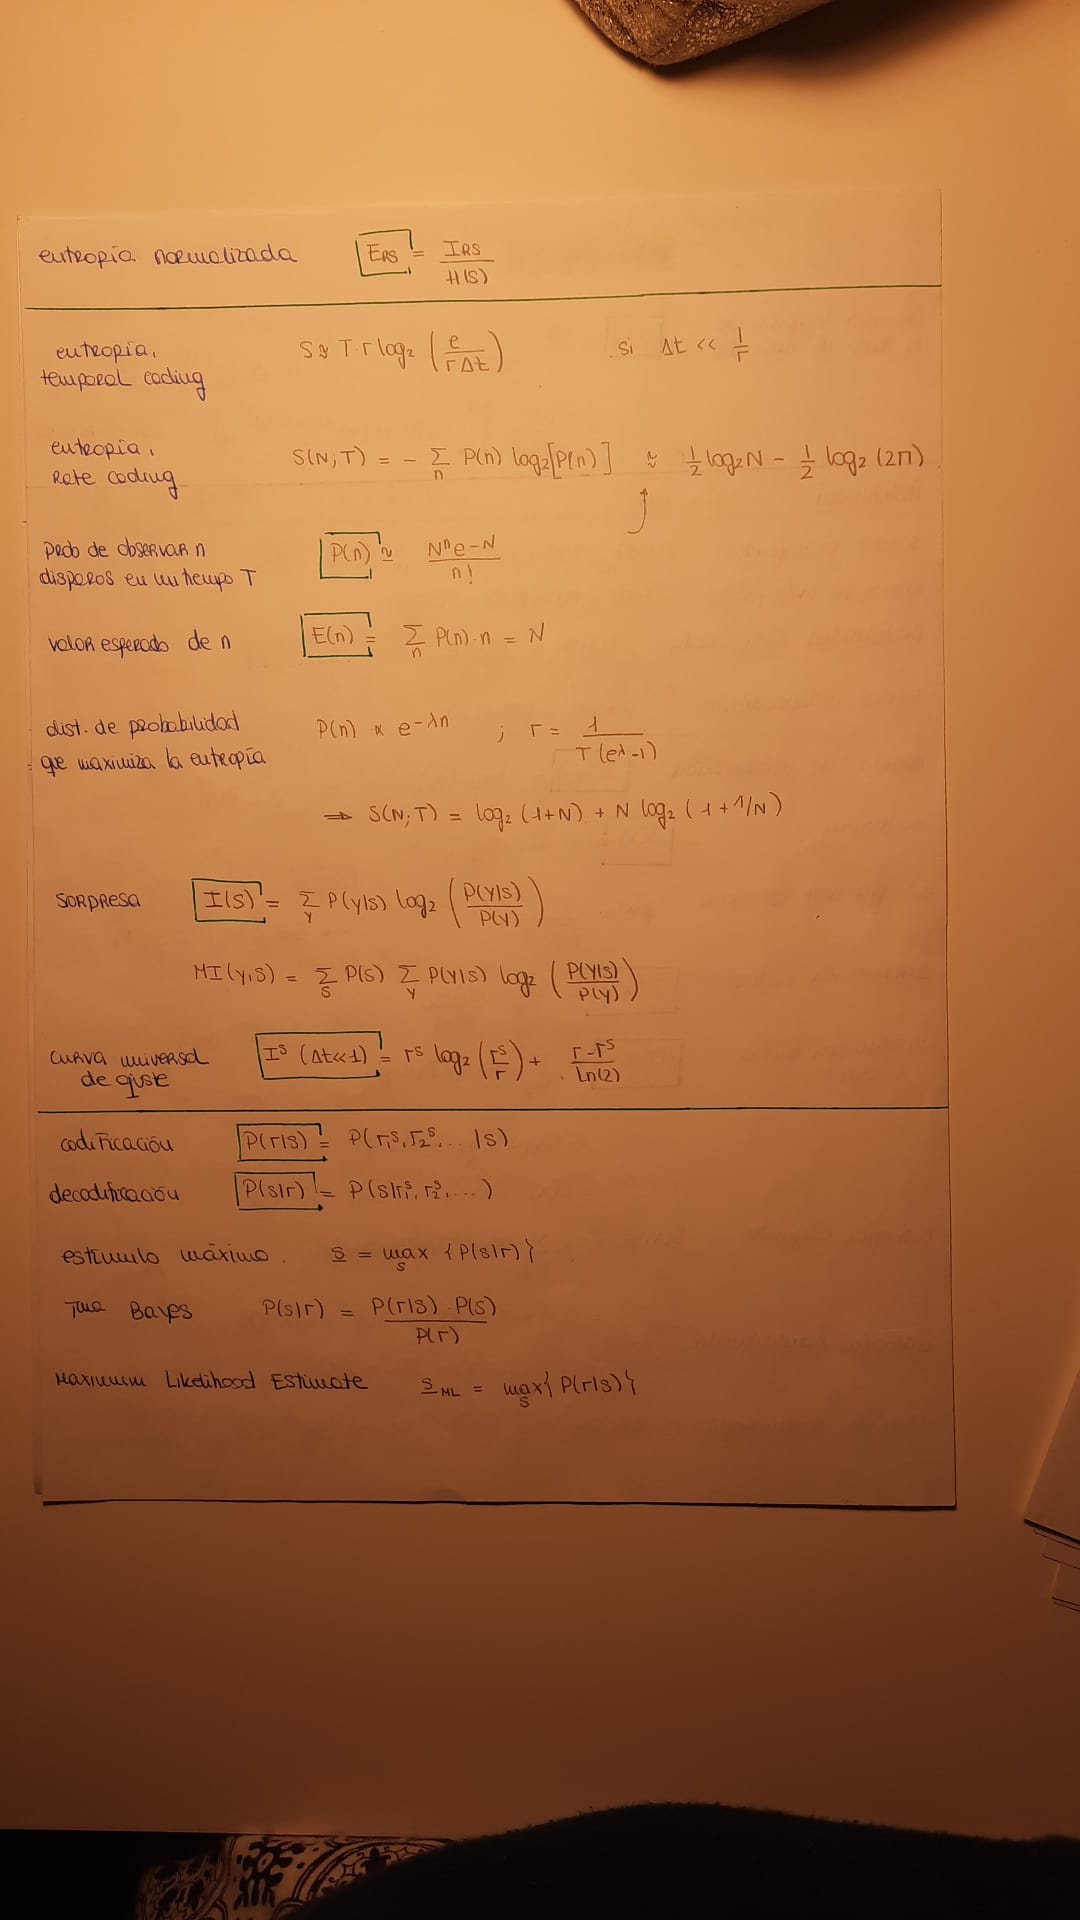 entropía normalizada E_RS = I_RS / H(S)
entropía, temporal coding S ≈ T·r log₂ (e / rΔt) si Δt << 1/r
entropía, Rate coding S(N,T) = - Σ_n P(n) log₂[P(n)] ≈ ½ log₂N - ½ log₂ (2π)
prob de observar n
disparos en un tiempo T P(n) ≈ Nⁿe-N / n!
valor esperado de n E(n) = Σ_n P(n)·n = N
dist. de probabilidad
que maximiza la entropía P(n) ∝ e^-λn ; r = 1 / T(e^λ-1)
⇒ S(N;T) = log₂ (1+N) + N log₂ (1+1/N)
SORPRESA I(S) = Σ_y P(y|s) log₂ (P(y|s) / P(y))
MI(y,s) = Σ_s P(s) Σ_y P(y|s) log₂ (P(y|s) / P(y))
curva universal
de ajuste I^s (Δt<<1) = r^s log₂ (r^s / r) + r-r^s / Ln(2)
codificación P(r|s) = P(r₁^s, r₂^s, ... |s)
decodificación P(s|r) = P(s|r₁^s, r₂^s, ...)
estímulo máximo. s = max_s {P(s|r)}
Tma Bayes P(s|r) = P(r|s)·P(s) / P(r)
Maximum Likelihood Estimate s_ML = max_s{P(r|s)}